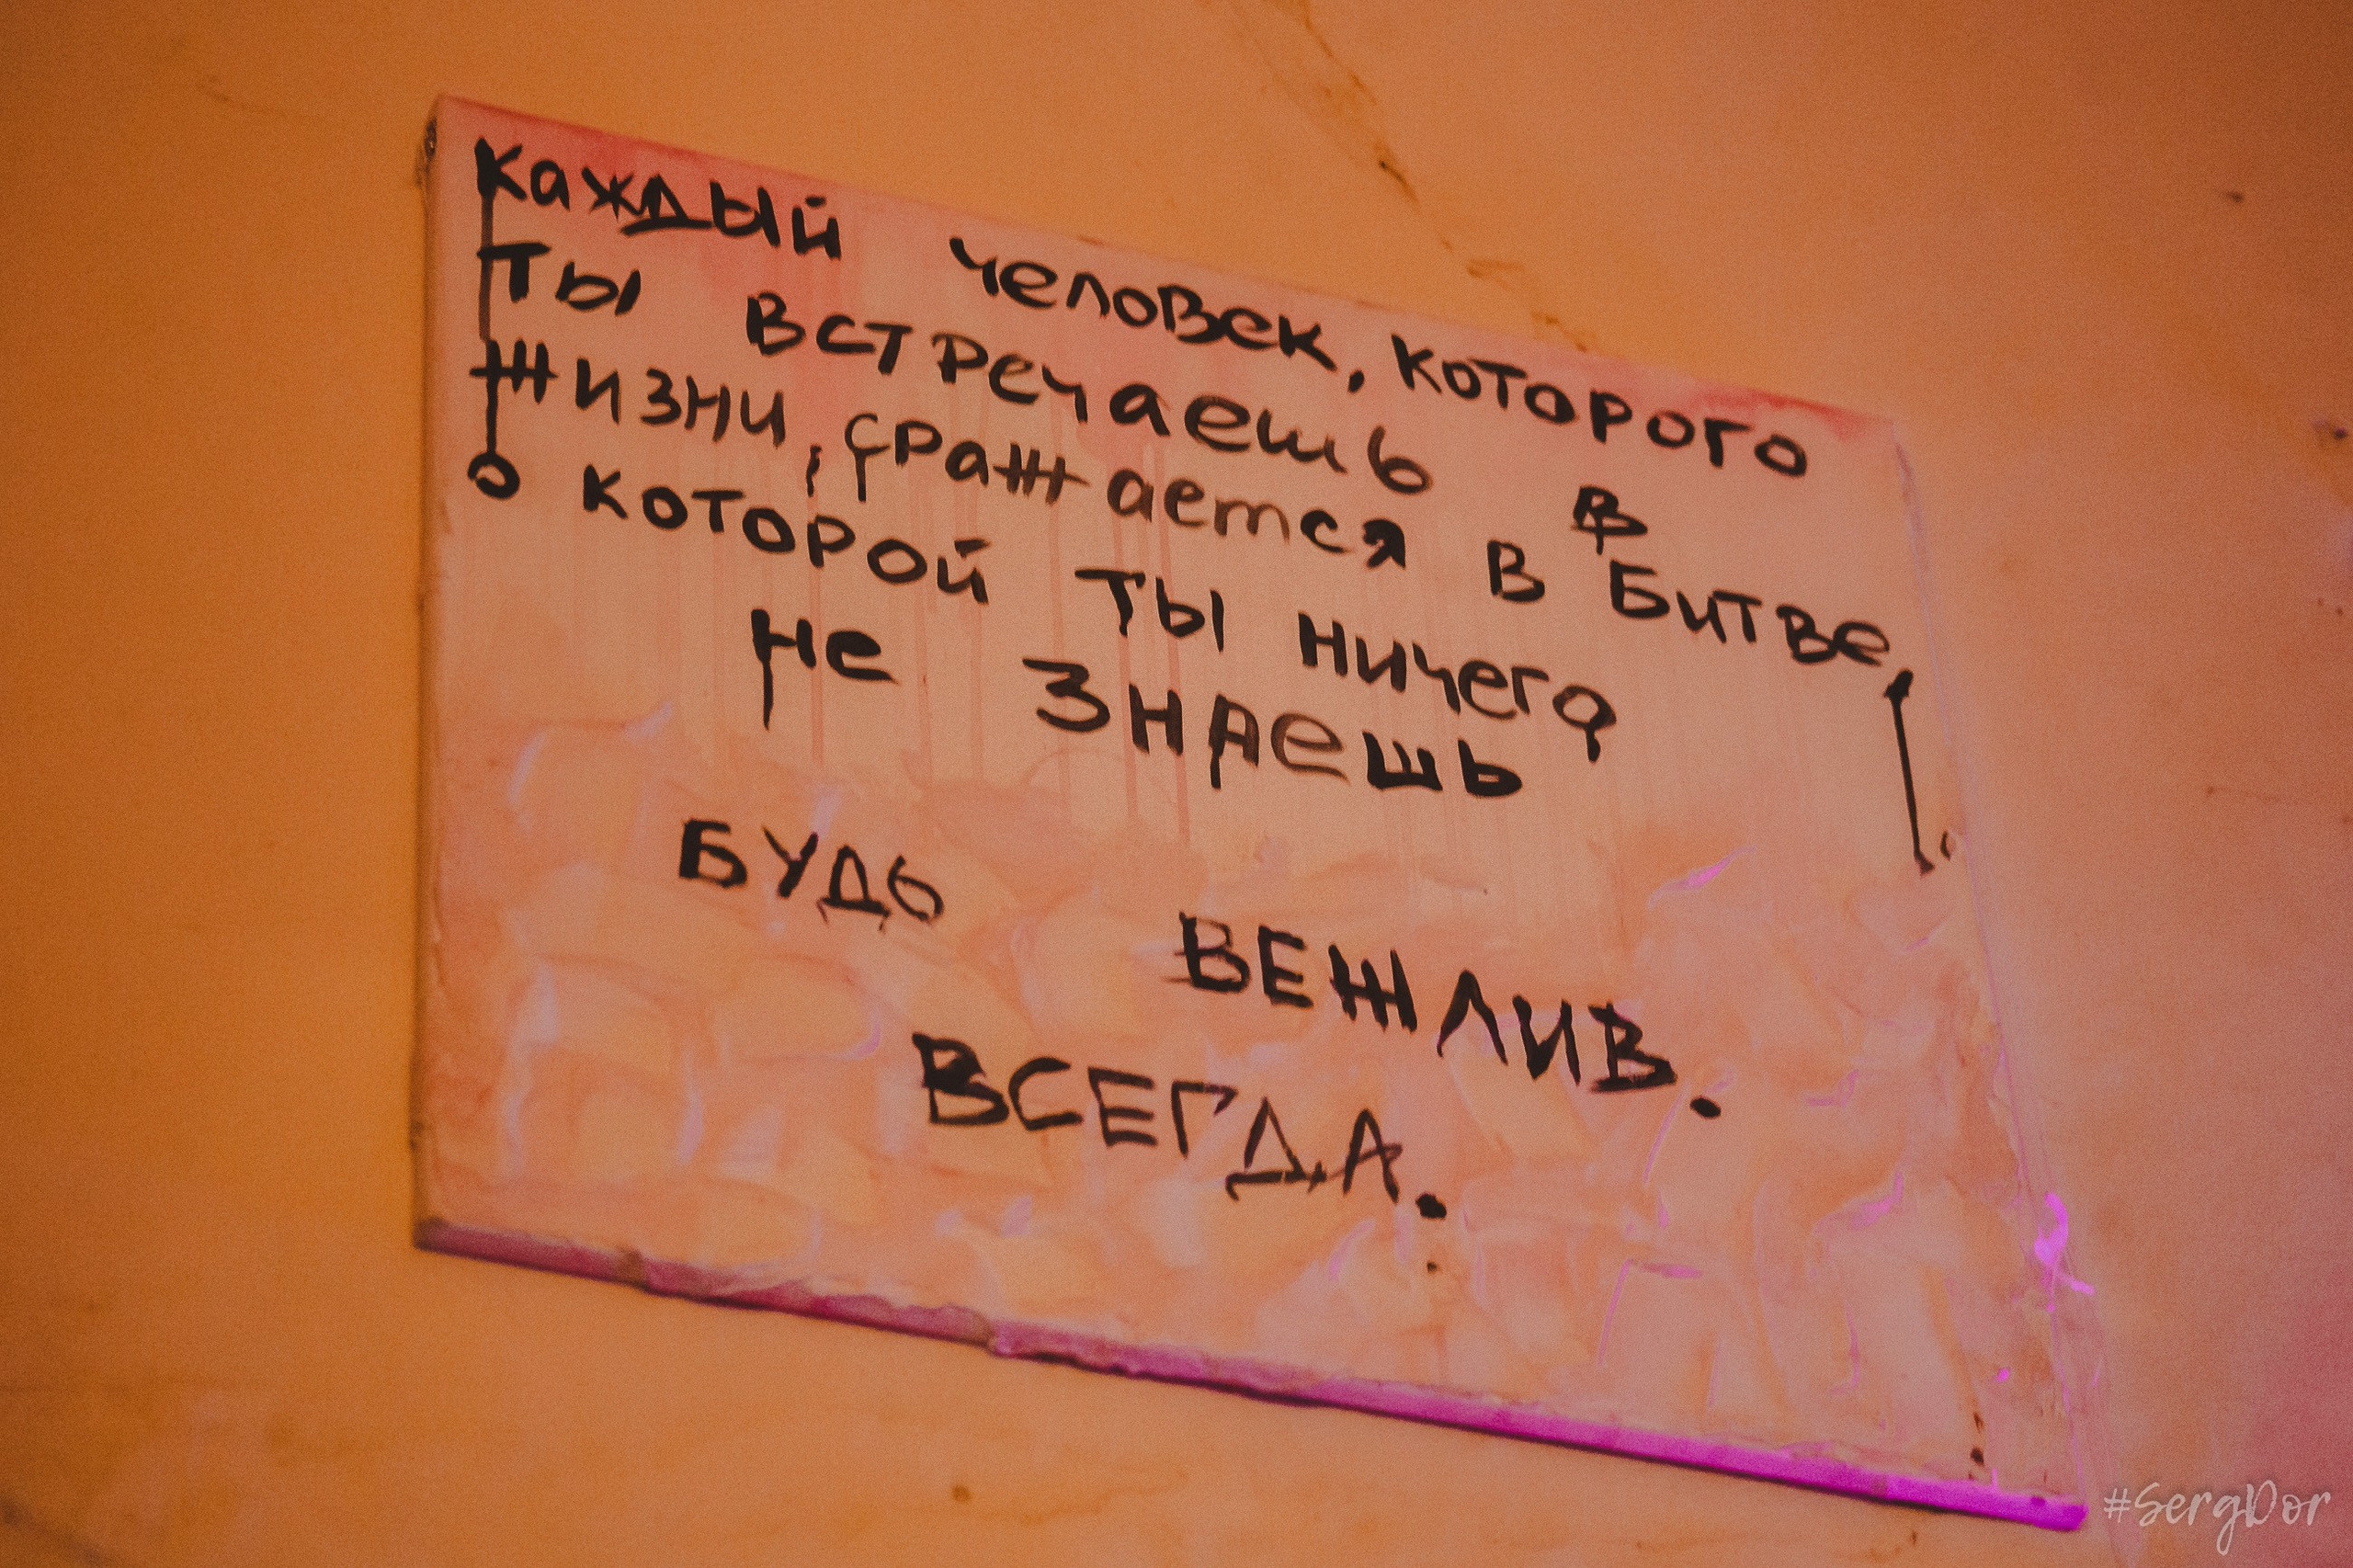 Каждый человек, которого
ты встречаешь в
жизни, сражается в битве,
о которой ты ничего
не знаешь
БУДЬ ВЕЖЛИВ.
ВСЕГДА.
#SergDor